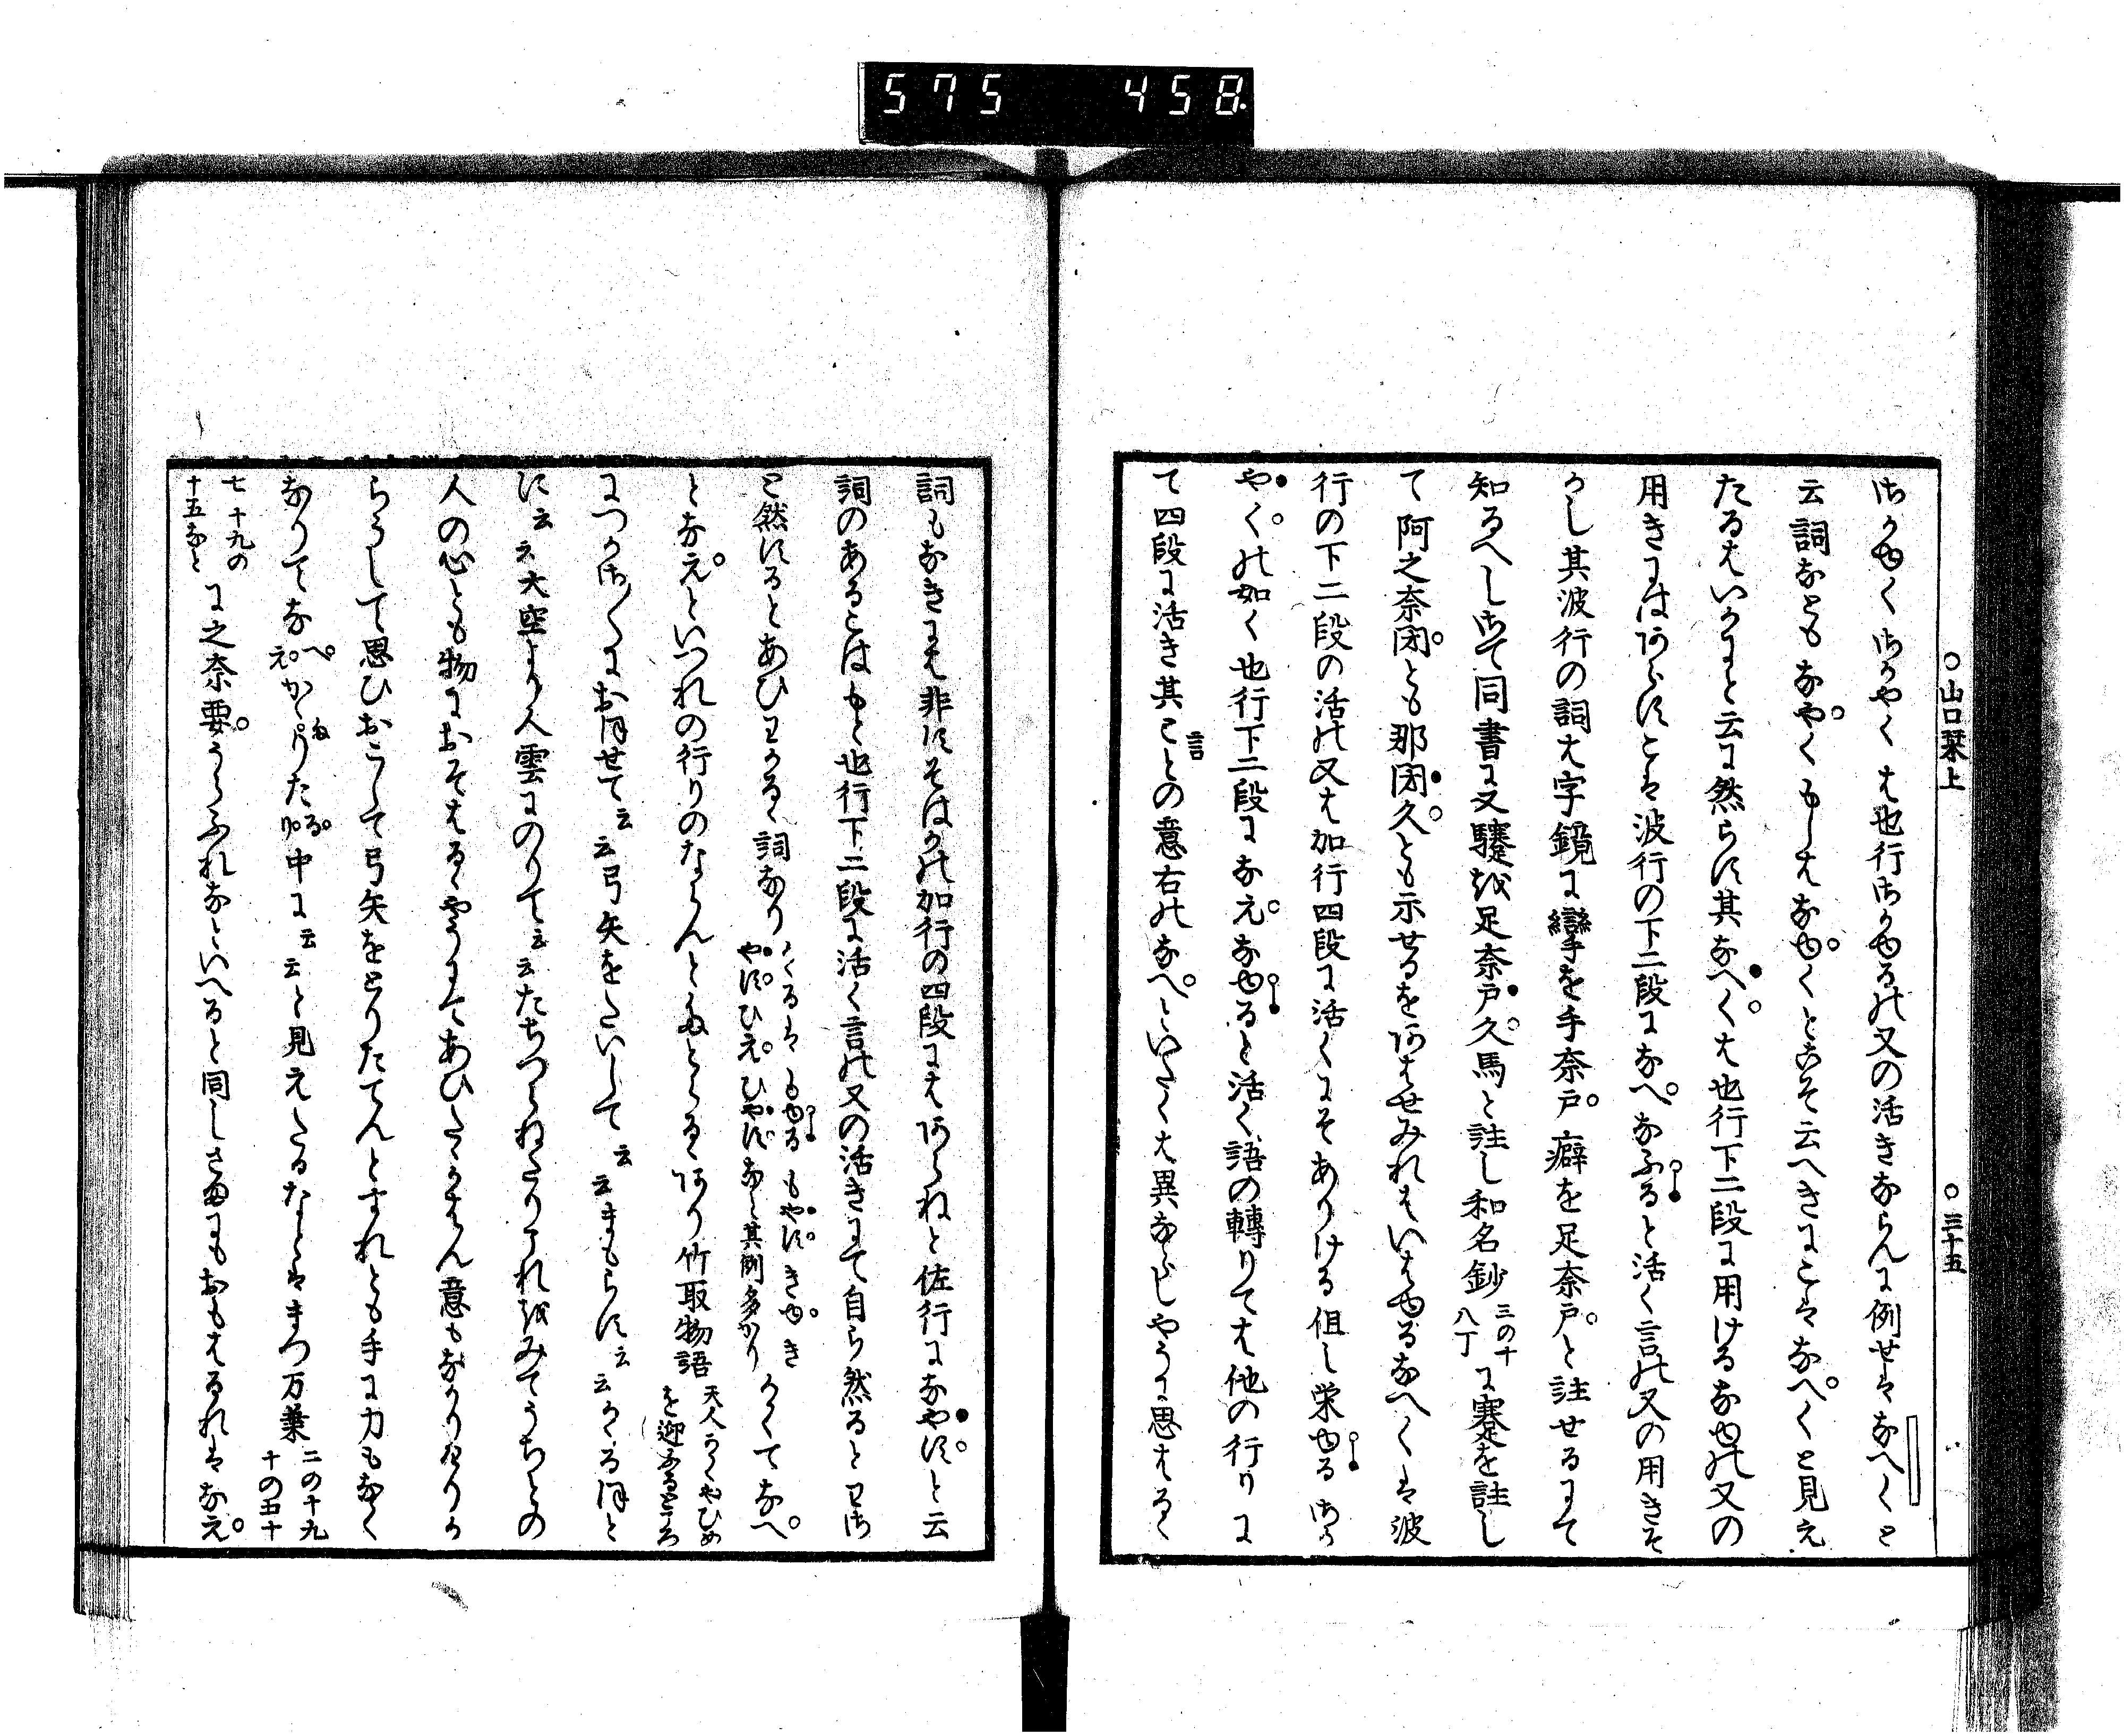 575 458
○山口栞上 ○三十五
さかゆくさかやくは也行さかゆるの又の活きならんに例せはなへくと
云詞なともなやくもしはなゆくとこそ云へきにこはなへくと見え
たるはいかにと云に然らす其なへくは也行下二段に用けるなゆの又の
用きにはあらすとは波行の下二段になへなふると活く言の又の用きそ
かし其波行の詞は字鏡に攣を手奈戸癖を足奈戸と註せるにて
知るへしさて同書に又騫を足奈戸久馬と註し和名鈔三の十八丁に蹇を註し
て阿之奈閇とも那閇久とも示せるをあはせみれはいはゆるなへくは波
行の下二段の活の又は加行四段に活くにそありける但し栄ゆるさか
やくの如く也行下二段になえなゆると活く語の轉りては他の行りに
て四段に活き其こと言の意右のなへといたくは異ならしやうに思はるゝ
詞もなきには非すそはかの加行の四段にはあらねと佐行になやすと云
詞のあることはもと也行下二段に活く言の又の活きにて自ら然るとわさ
と然するとあひわかるゝ詞なりくるはもゆるもやすきゆきやすひえひやすなと其例多かりかくてなへ
となえといつれの行りのならんとまとはるゝあり竹取物語天人かくやひめを迎ふるところ
につかさ／＼におほせて云云弓矢をたいして云云まもらす云云かゝるほと
に云云大空より人雲にのりて云云たちつらねたりこれをみてうちとの
人の心とも物におそはるゝやうにてあひたゝかはん意もなかりけりか
らうして思ひおこして弓矢をとりたてんとすれとも手に力もなく
なりてなへえかゝりたる中に云云と見えたるなとはまつ万葉二の十九十の五十
七十九の十五なとに之奈要うらふれなといへると同しさまにもおもはるれはなえ